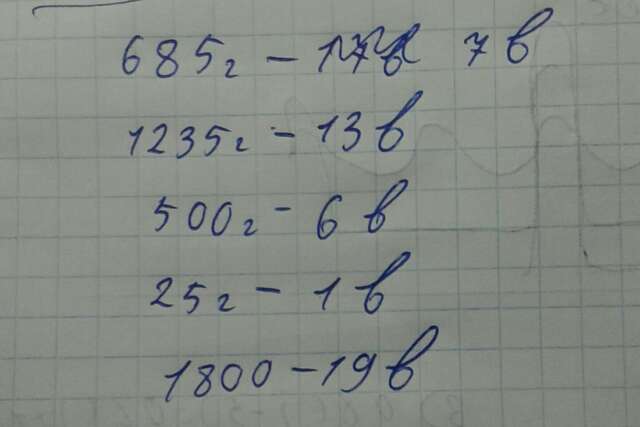 685г - 7 в
1235г - 13 в
500г - 6 в
25г - 1 в
1800 - 19 в